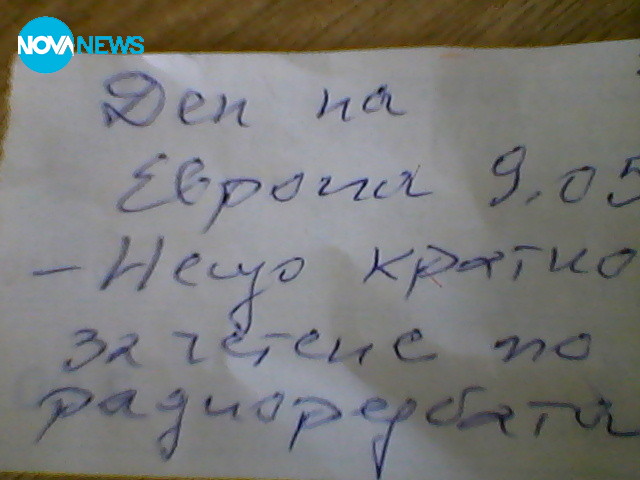 NOVA NEWS
Ден на
Европа 9.05
- Нещо кратко
за четене по